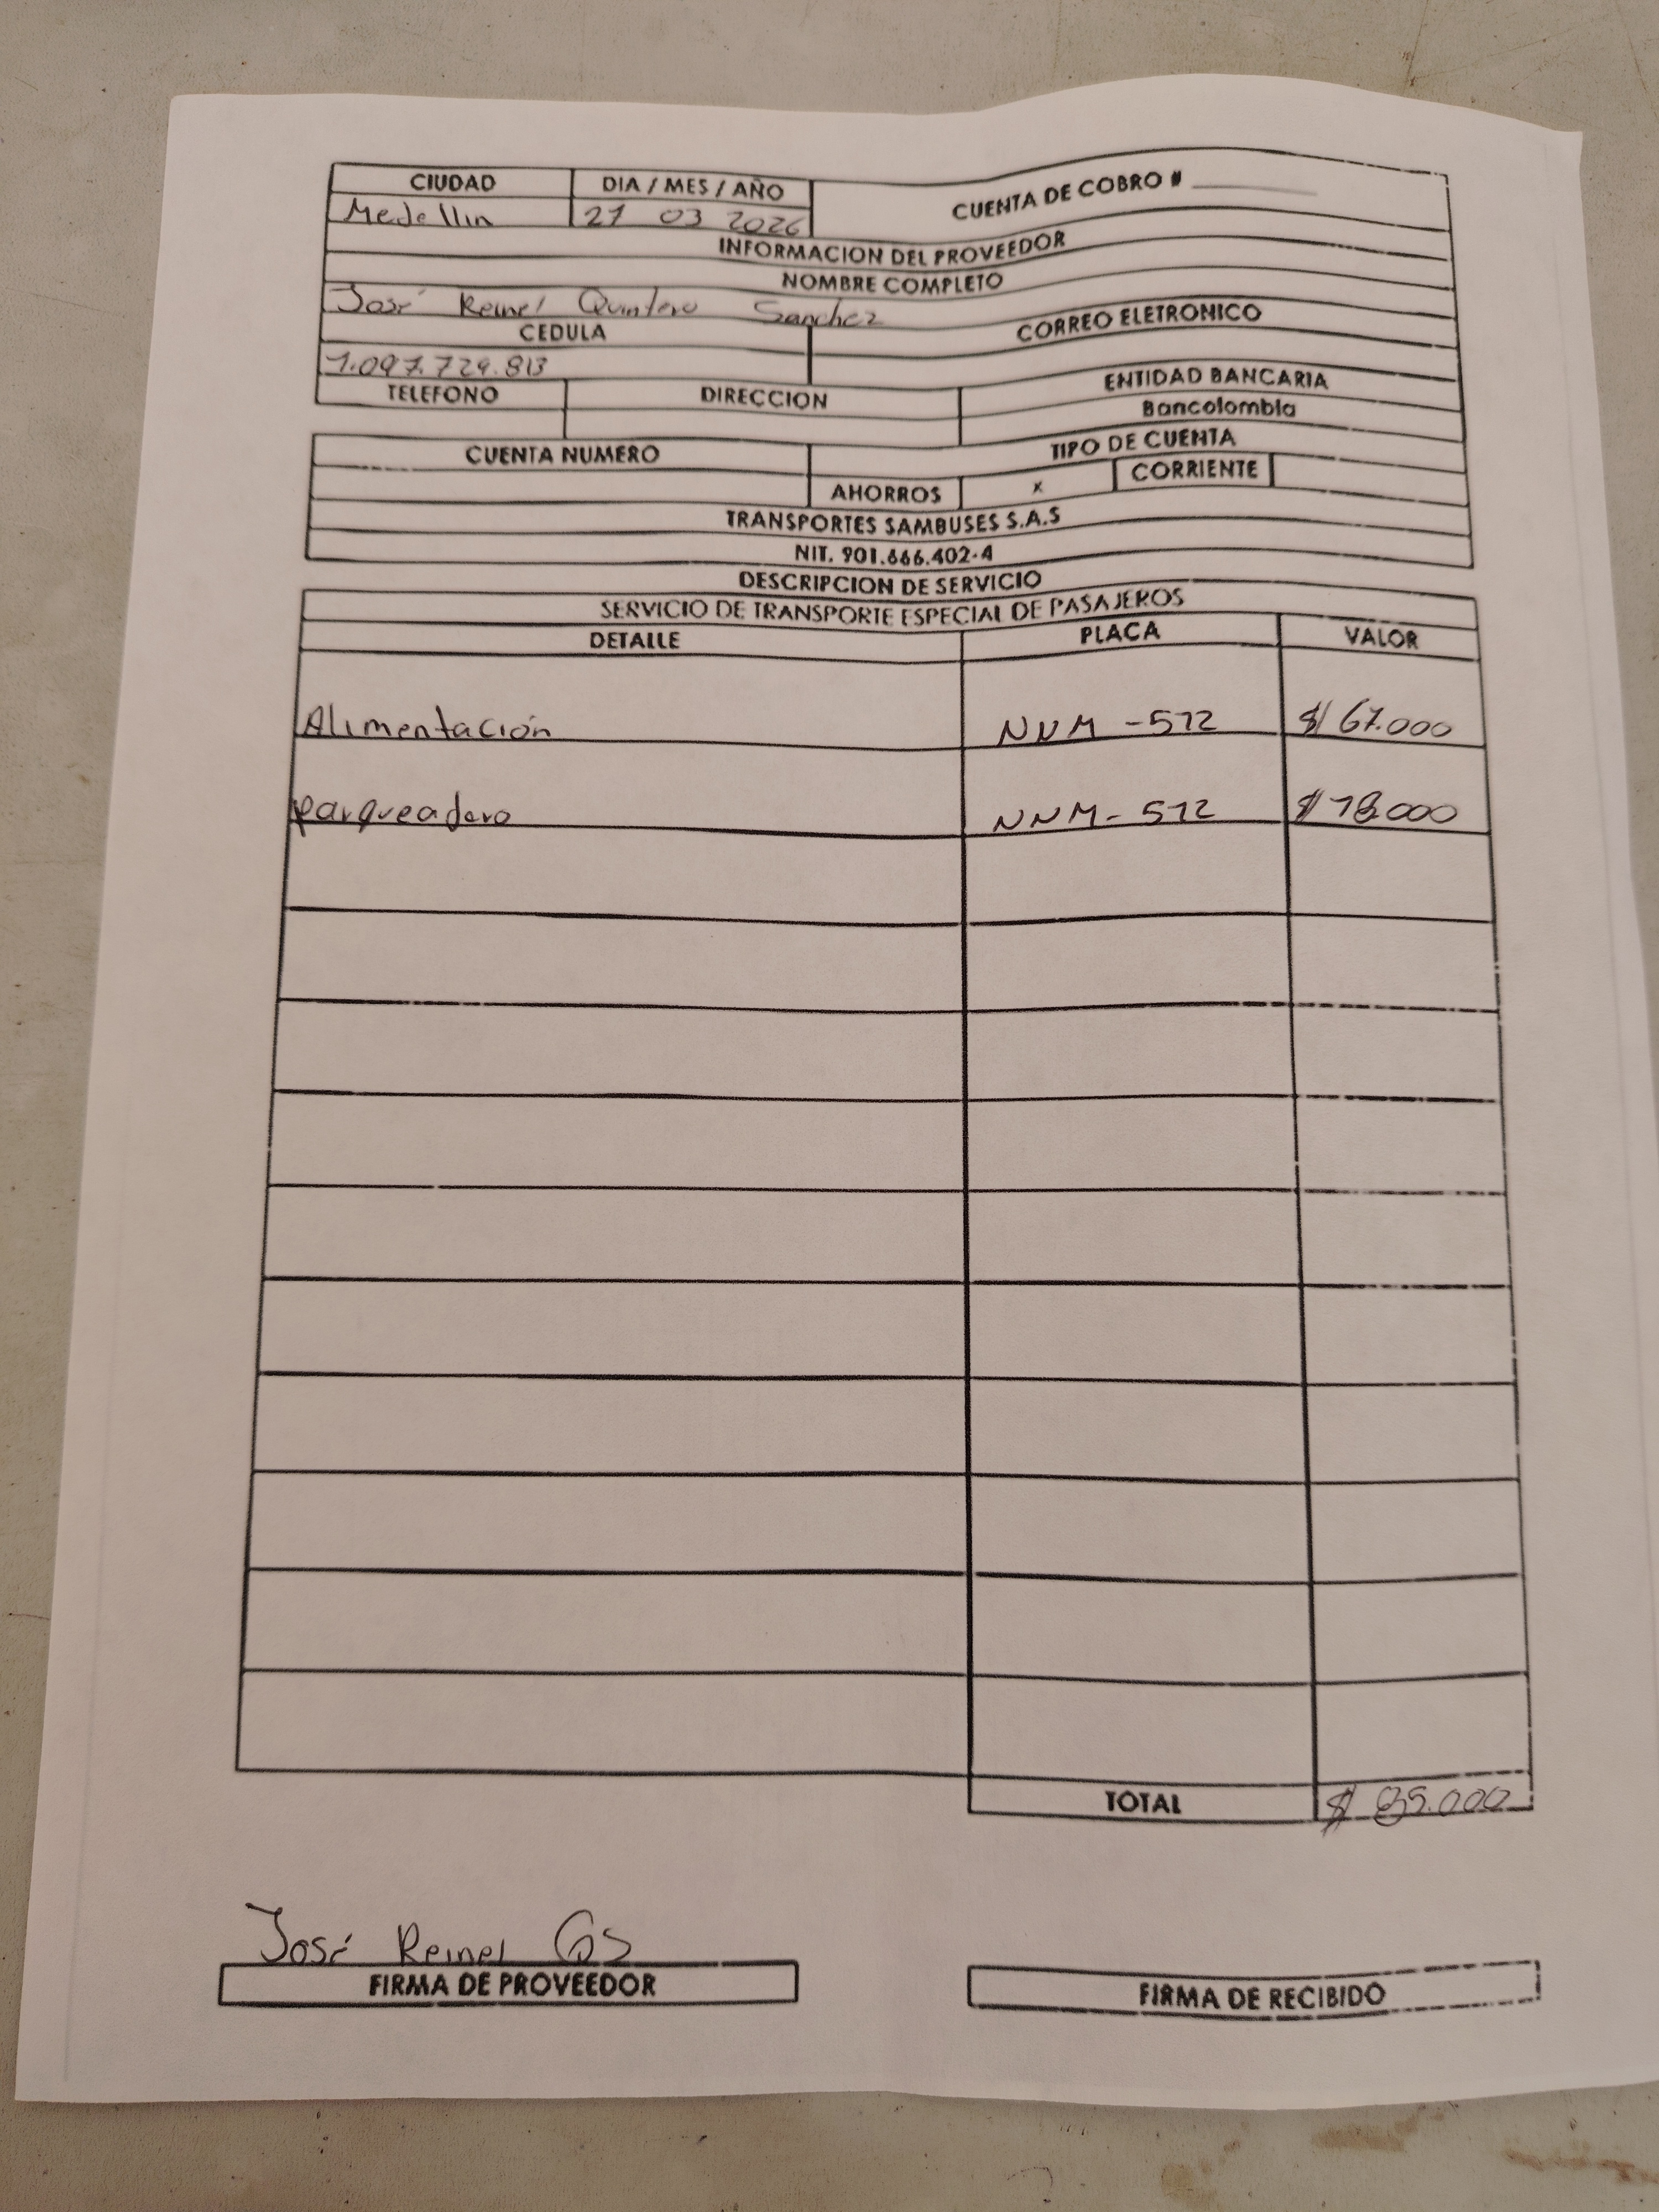 CIUDAD DIA / MES / AÑO CUENTA DE COBRO #
Medellin 21 03 2026
INFORMACION DEL PROVEEDOR
NOMBRE COMPLETO
José Reinel Quintero Sanchez
CEDULA CORREO ELETRONICO
1.097.729.813
TELEFONO DIRECCION ENTIDAD BANCARIA
Bancolombia
CUENTA NUMERO TIPO DE CUENTA
AHORROS x CORRIENTE
TRANSPORTES SAMBUSES S.A.S
NIT. 901.666.402-4
DESCRIPCION DE SERVICIO
SERVICIO DE TRANSPORTE ESPECIAL DE PASAJEROS
DETALLE PLACA VALOR
Alimentación NNM-512 $ 67.000
parqueadero NNM-512 $ 18.000
TOTAL $ 85.000
José Reinel QS
FIRMA DE PROVEEDOR FIRMA DE RECIBIDO